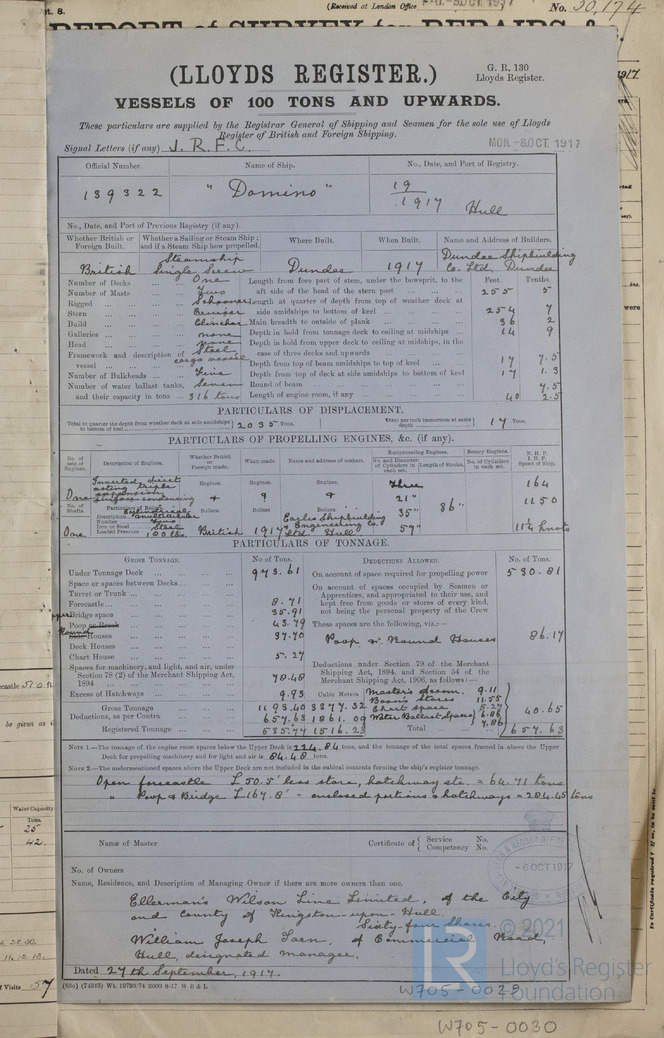 (Received at London Office
FRI.-5 OCT. 1917
No. 30,174
REPORT of SURVEY for REPAIRS, &
(LLOYDS REGISTER.)
G. R. 130
Lloyds Register.
VESSELS OF 100 TONS AND UPWARDS.
These particulars are supplied by the Registrar General of Shipping and Seamen for the sole use of Lloyds
Register of British and Foreign Shipping.
Signal Letters (if any) J. R. F. C.
MON.-8 OCT. 1917
Official Number. Name of Ship. No., Date, and Port of Registry.
139322 "Domino" 19
1917 Hull
No., Date, and Port of Previous Registry (if any).
Whether British or Foreign Built. Whether a Sailing or Steam Ship; and if a Steam Ship how propelled. Where Built. When Built. Name and Address of Builders.
British Steamship Single Screw Dundee 1917 Dundee Shipbuilding Co. Ltd. Dundee
Number of Decks One
Number of Masts Two
Rigged Schooner
Stern Cruiser
Build Clincher
Galleries none
Head none
Framework and description of vessel Steel cargo vessel
Number of Bulkheads Five
Number of water ballast tanks, Seven
and their capacity in tons 316 tons
Feet. Tenths.
Length from fore part of stem, under the bowsprit, to the
aft side of the head of the stern post 255 5
Length at quarter of depth from top of weather deck at
side amidships to bottom of keel 254 7
Main breadth to outside of plank 36 2
Depth in hold from tonnage deck to ceiling at midships 14 9
Depth in hold from upper deck to ceiling at midships, in the
case of three decks and upwards
Depth from top of beam amidships to top of keel 17 7.5
Depth from top of deck at side amidships to bottom of keel 17 1.3
Round of beam 7.5
Length of engine room, if any 40 2.5
PARTICULARS OF DISPLACEMENT.
Total to quarter the depth from weather deck at side amidships to bottom of keel 2035 Tons.
Ditto per inch immersion at same depth 17 Tons.
PARTICULARS OF PROPELLING ENGINES, &c. (if any).
No. of sets of Engines. Description of Engines. Whether British or Foreign made. When made. Name and address of makers. Reciprocating Engines. No. and Diameter of Cylinders in each set. Length of Stroke. Rotary Engines. No. of Cylinders in each set. N.H.P. I.H.P. Speed of Ship.
One Inverted direct acting triple expansion surface condensing
Engines. Engines. Engines.
Three 21" 35" 57" 36"
164
1150
11¼ knots
No. of Shafts. One
Particulars of Boilers.
Description Cylindrical multitubular
Number Two
Iron or Steel Steel
Loaded Pressure 180 lbs.
Boilers Boilers Boilers
British 1917 Earles Shipbuilding & Engineering Co Ltd. Hull
PARTICULARS OF TONNAGE.
Gross Tonnage. No. of Tons.
Under Tonnage Deck 973.61
Space or spaces between Decks
Turret or Trunk
Forecastle 8.71
Bridge space 35.91
Poop or Break 43.79
Round Side Houses 37.70
Deck Houses
Chart House 5.27
Spaces for machinery, and light, and air, under
Section 78 (2) of the Merchant Shipping Act,
1894 78.48
Excess of Hatchways 9.93
Cubic Metres
Gross Tonnage 1193.40 3377.32
Deductions, as per Contra 657.63 1861.09
Registered Tonnage 535.77 1516.23
Deductions Allowed. No. of Tons.
On account of space required for propelling power 530.81
On account of spaces occupied by Seamen or
Apprentices, and appropriated to their use, and
kept free from goods or stores of every kind,
not being the personal property of the Crew
These spaces are the following, viz.:—
Poop & Round Houses 86.17
Deductions under Section 79 of the Merchant
Shipping Act, 1894, and Section 54 of the
Merchant Shipping Act, 1906, as follows:—
Master's Room. 9.11
Bosn's Stores 11.55
Chart space 5.27
Water Ballast Spaces 6.86 7.86
40.65
Total 657.63
Note 1.—The tonnage of the engine room spaces below the Upper Deck is 224.84 tons, and the tonnage of the total spaces framed in above the Upper
Deck for propelling machinery and for light and air is 84.48 tons.
Note 2.—The undermentioned spaces above the Upper Deck are not included in the cubical contents forming the ship's register tonnage.
Open forecastle L 50.5' less store, hatchway etc. = 64.71 tons
" Poop & Bridge L 167.8' - enclosed portions & hatchways = 284.45 tons
Name of Master
Certificate of Service No. Competency No.
No. of Owners
Name, Residence, and Description of Managing Owner if there are more owners than one.
Ellerman's Wilson Line Limited, of the City
and County of Kingston-upon-Hull.
Sixty-four Shares.
William Joseph Tarn, of Commercial Road,
Hull, designated manager.
-6 OCT 1917
Dated 27th September, 1917.
(830) (74343) Wt. 19793/74 2000 8-17 W B & L
© 2021
Lloyd's Register
Foundation
W705-0029
W705-0030
Water Capacity
Tons
25
42.